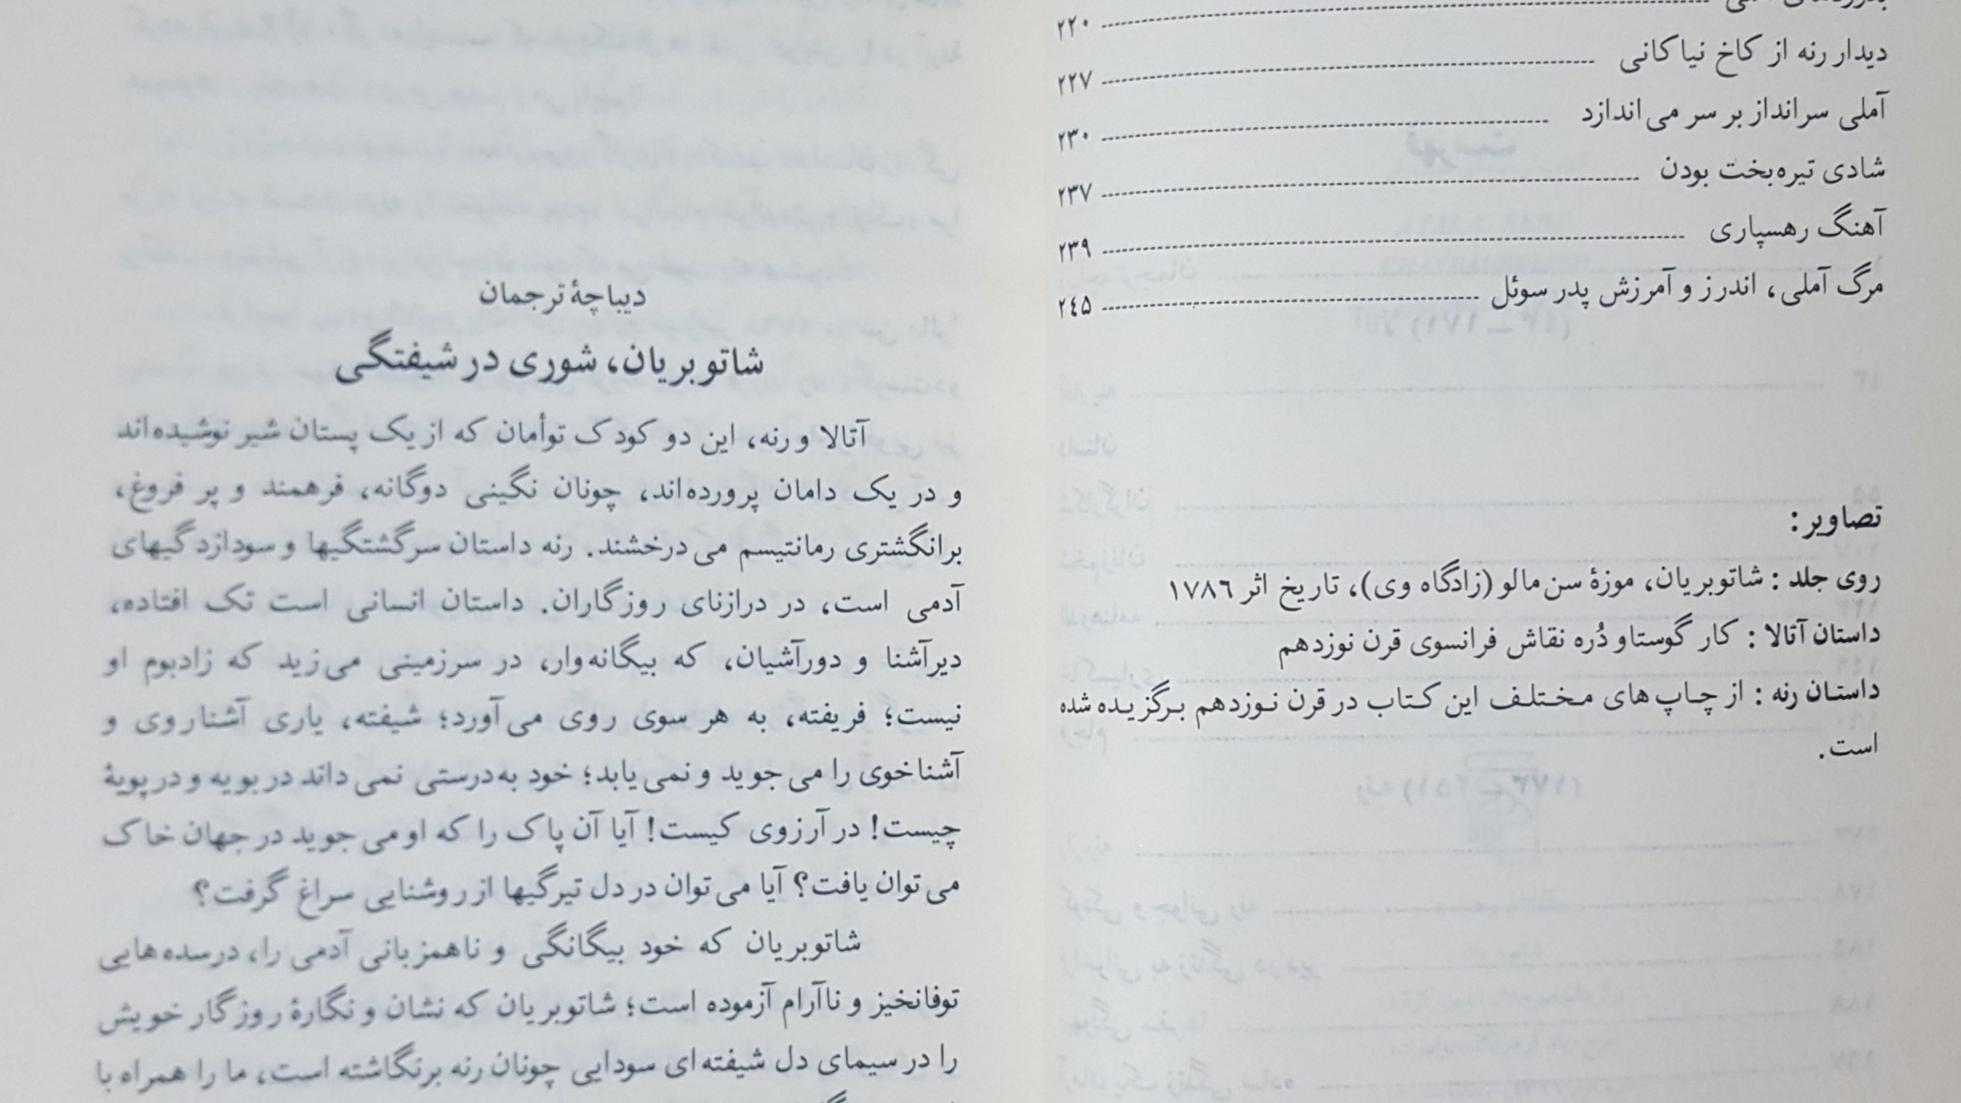 ۲۲۰
دیدار رنه از کاخ نیاکانی ۲۲۷
آملی سرانداز بر سر می‌اندازد ۲۳۰
شادی تیره‌بخت بودن ۲۳۷
آهنگ رهسپاری ۲۳۹
مرگ آملی، اندرز و آمرزش پدر سوئل ۲٤۵
تصاویر:
روی جلد : شاتوبریان، موزهٔ سن‌مالو (زادگاه وی)، تاریخ اثر ۱۷۸٦
داستان آتالا : کار گوستاو دُره نقاش فرانسوی قرن نوزدهم
داستان رنه : از چاپ‌های مختلف این کتاب در قرن نوزدهم برگزیده شده
است.
دیباچهٔ ترجمان
شاتوبریان، شوری در شیفتگی
آتالا و رنه، این دو کودک توأمان که از یک پستان شیر نوشیده‌اند
و در یک دامان پرورده‌اند، چونان نگینی دوگانه، فرهمند و پر فروغ،
برانگشتری رمانتیسم می‌درخشند. رنه داستان سرگشتگیها و سودازدگیهای
آدمی است، در درازنای روزگاران. داستان انسانی است تک افتاده،
دیرآشنا و دورآشیان، که بیگانه‌وار، در سرزمینی می‌زید که زادبوم او
نیست؛ فریفته، به هر سوی روی می‌آورد؛ شیفته، یاری آشناروی و
آشناخوی را می‌جوید و نمی‌یابد؛ خود به‌درستی نمی‌داند در بویه و در پویهٔ
چیست! در آرزوی کیست! آیا آن پاک را که او می‌جوید در جهان خاک
می‌توان یافت؟ آیا می‌توان در دل تیرگیها از روشنایی سراغ گرفت؟
شاتوبریان که خود بیگانگی و ناهمزبانی آدمی را، درسده‌هایی
توفانخیز و ناآرام آزموده است؛ شاتوبریان که نشان و نگارهٔ روزگار خویش
را در سیمای دل شیفته‌ای سودایی چونان رنه برنگاشته است، ما را همراه با